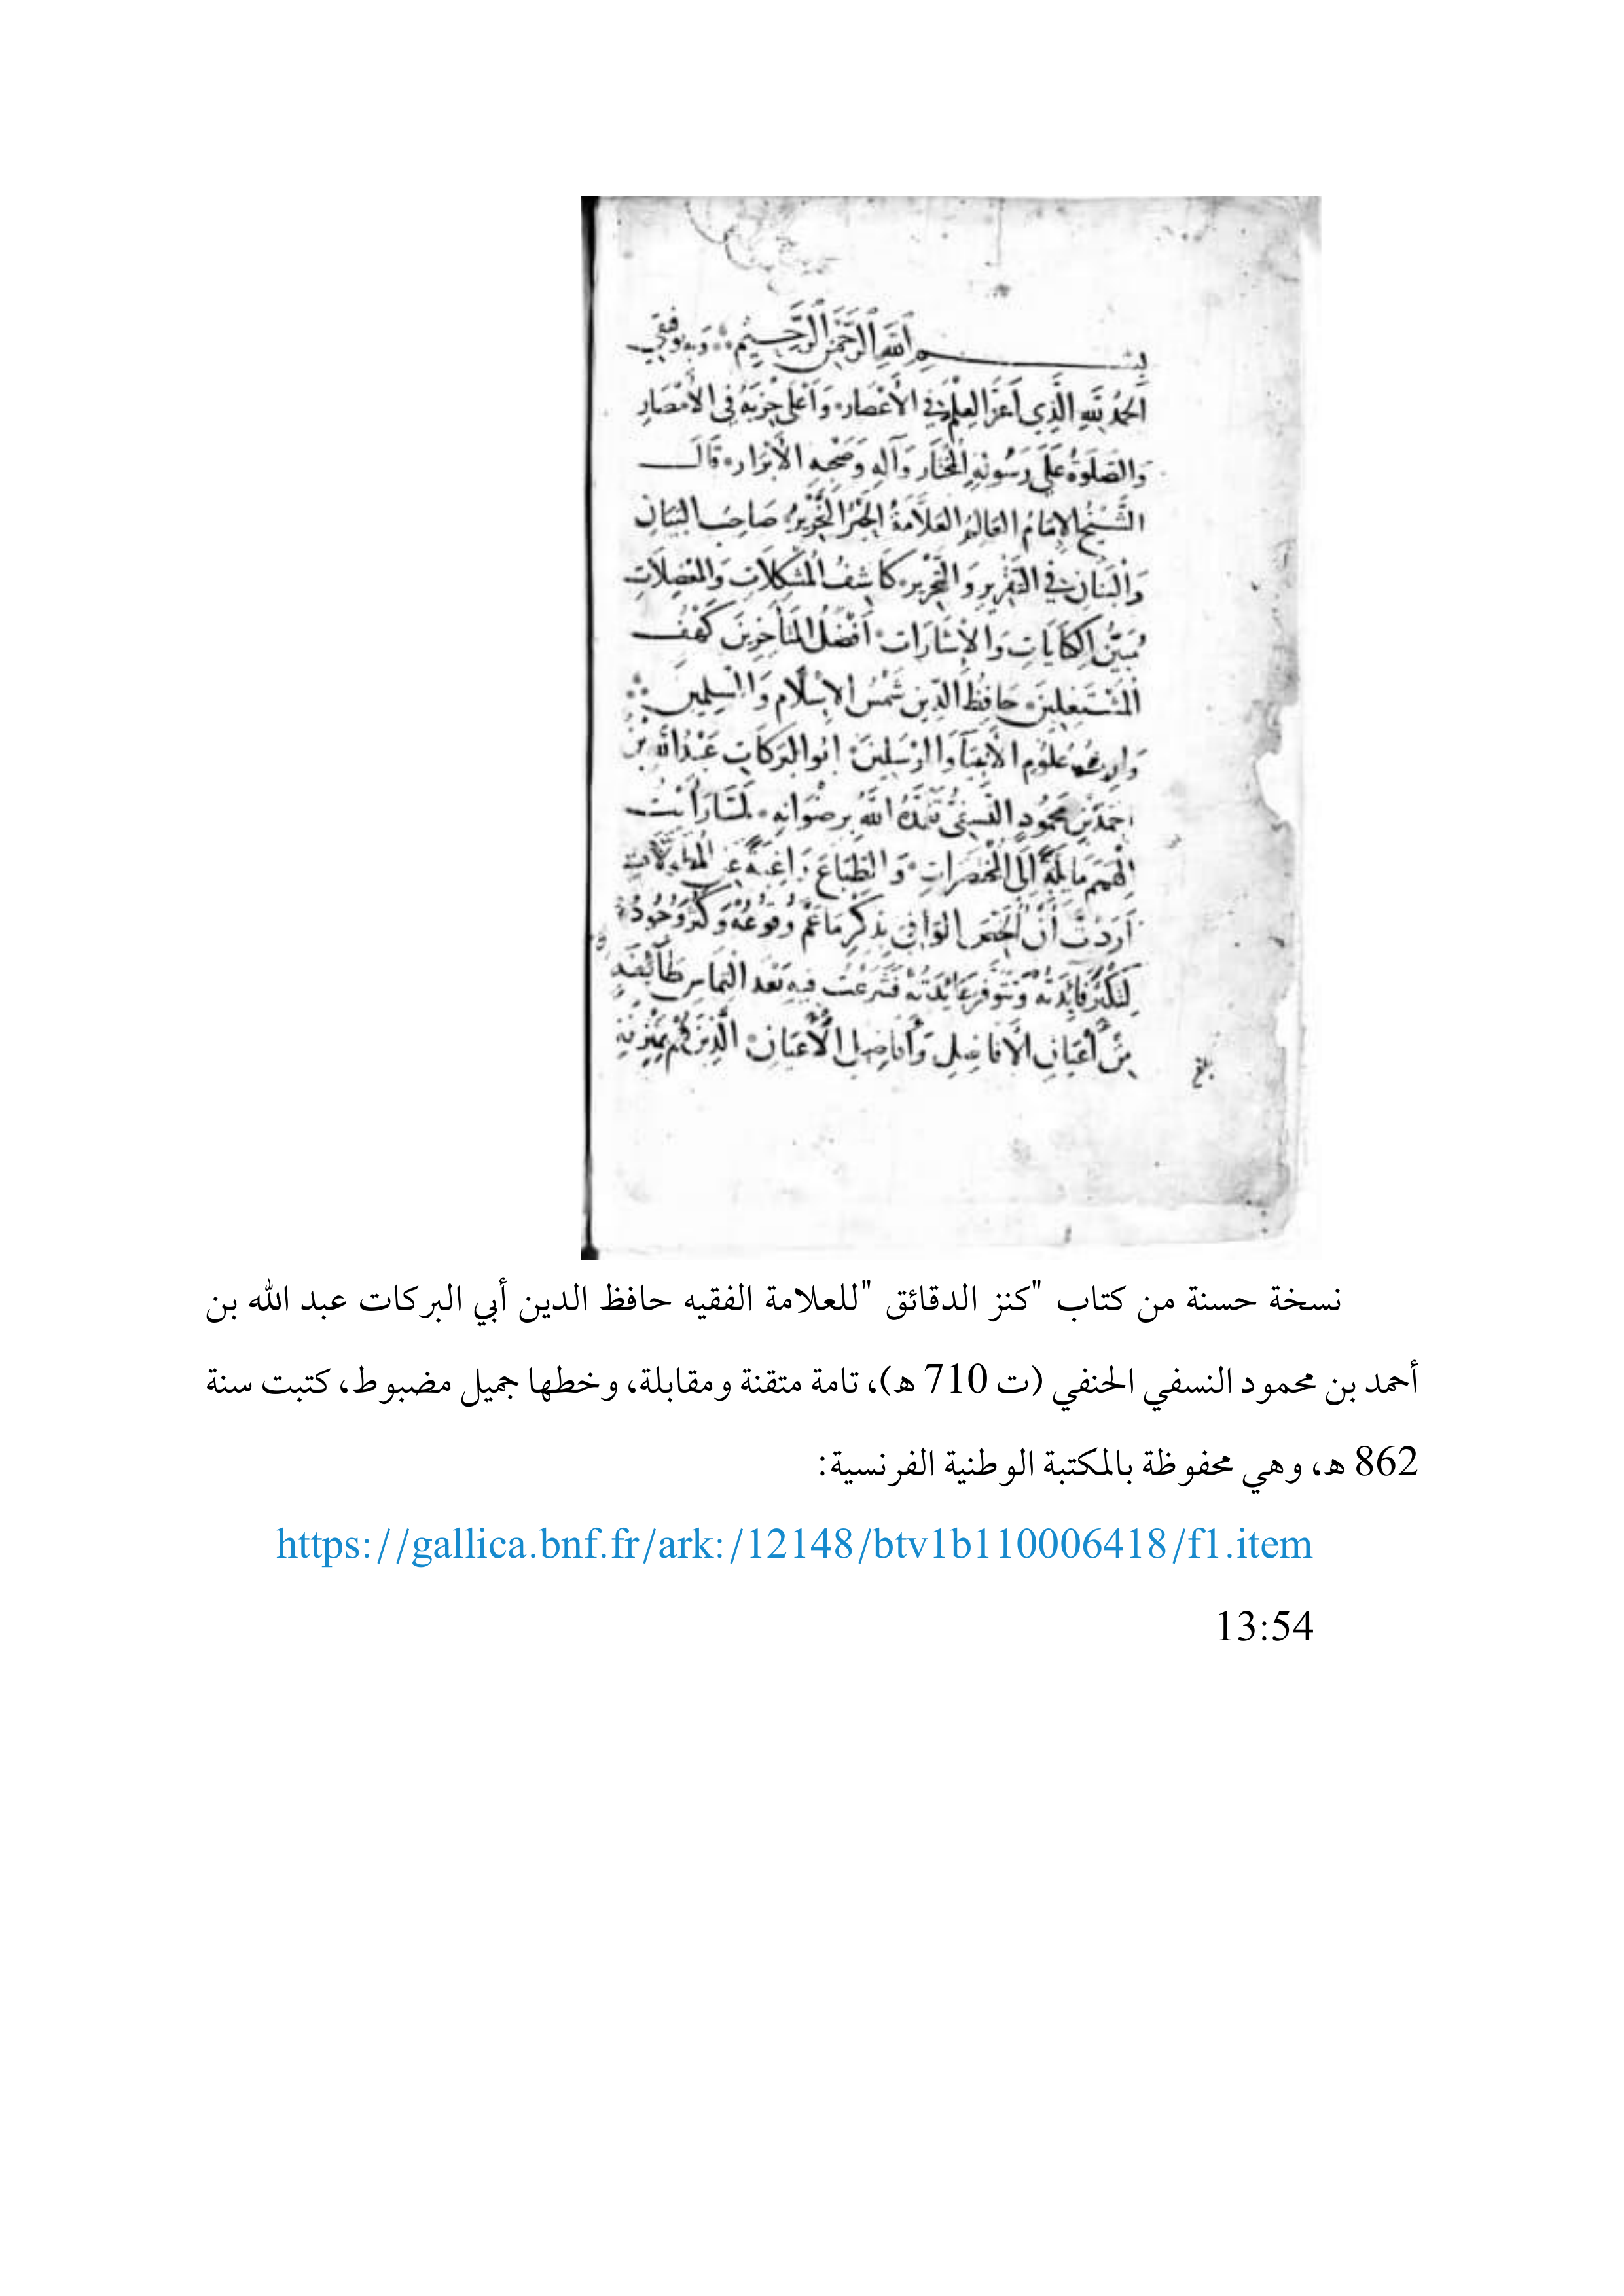 بسم الله الرحمن الرحيم وبه توفيقي
الحمد لله الذي أعز العلم في الأعصار وأعلى حزبه في الأمصار
والصلوة على رسوله المختار وآله وصحبه الأبرار قال
الشيخ الإمام العالم العلامة الحبر النحرير صاحب البيان
والبنان في التقرير والتحرير كاشف المشكلات والمعضلات
مبين الكنايات والإشارات أفضل المتأخرين كهف
المشتغلين حافظ الدين شمس الإسلام والمسلمين
وارث علوم الأنبياء والمرسلين أبو البركات عبد الله بن
أحمد بن محمود النسفي تغمده الله برضوانه لما رأيت
الهمم مايلة إلى المختصرات والطباع راغبة عن المطولات
أردت أن ألخص الوافي بذكر ما عم وقوعه وكثر وجوده
لتكثر فائدته وتتوفر عائدته فشرعت فيه بعد التماس طائفة
من أعيان الأفاضل وأفاضل الأعيان الذين هم بمنزلة
بلغ
نسخة حسنة من كتاب "كنز الدقائق "للعلامة الفقيه حافظ الدين أبي البركات عبد الله بن
أحمد بن محمود النسفي الحنفي (ت 710 هـ)، تامة متقنة ومقابلة، وخطها جميل مضبوط، كتبت سنة
862 هـ، وهي محفوظة بالمكتبة الوطنية الفرنسية:
https://gallica.bnf.fr/ark:/12148/btv1b110006418/f1.item
13:54